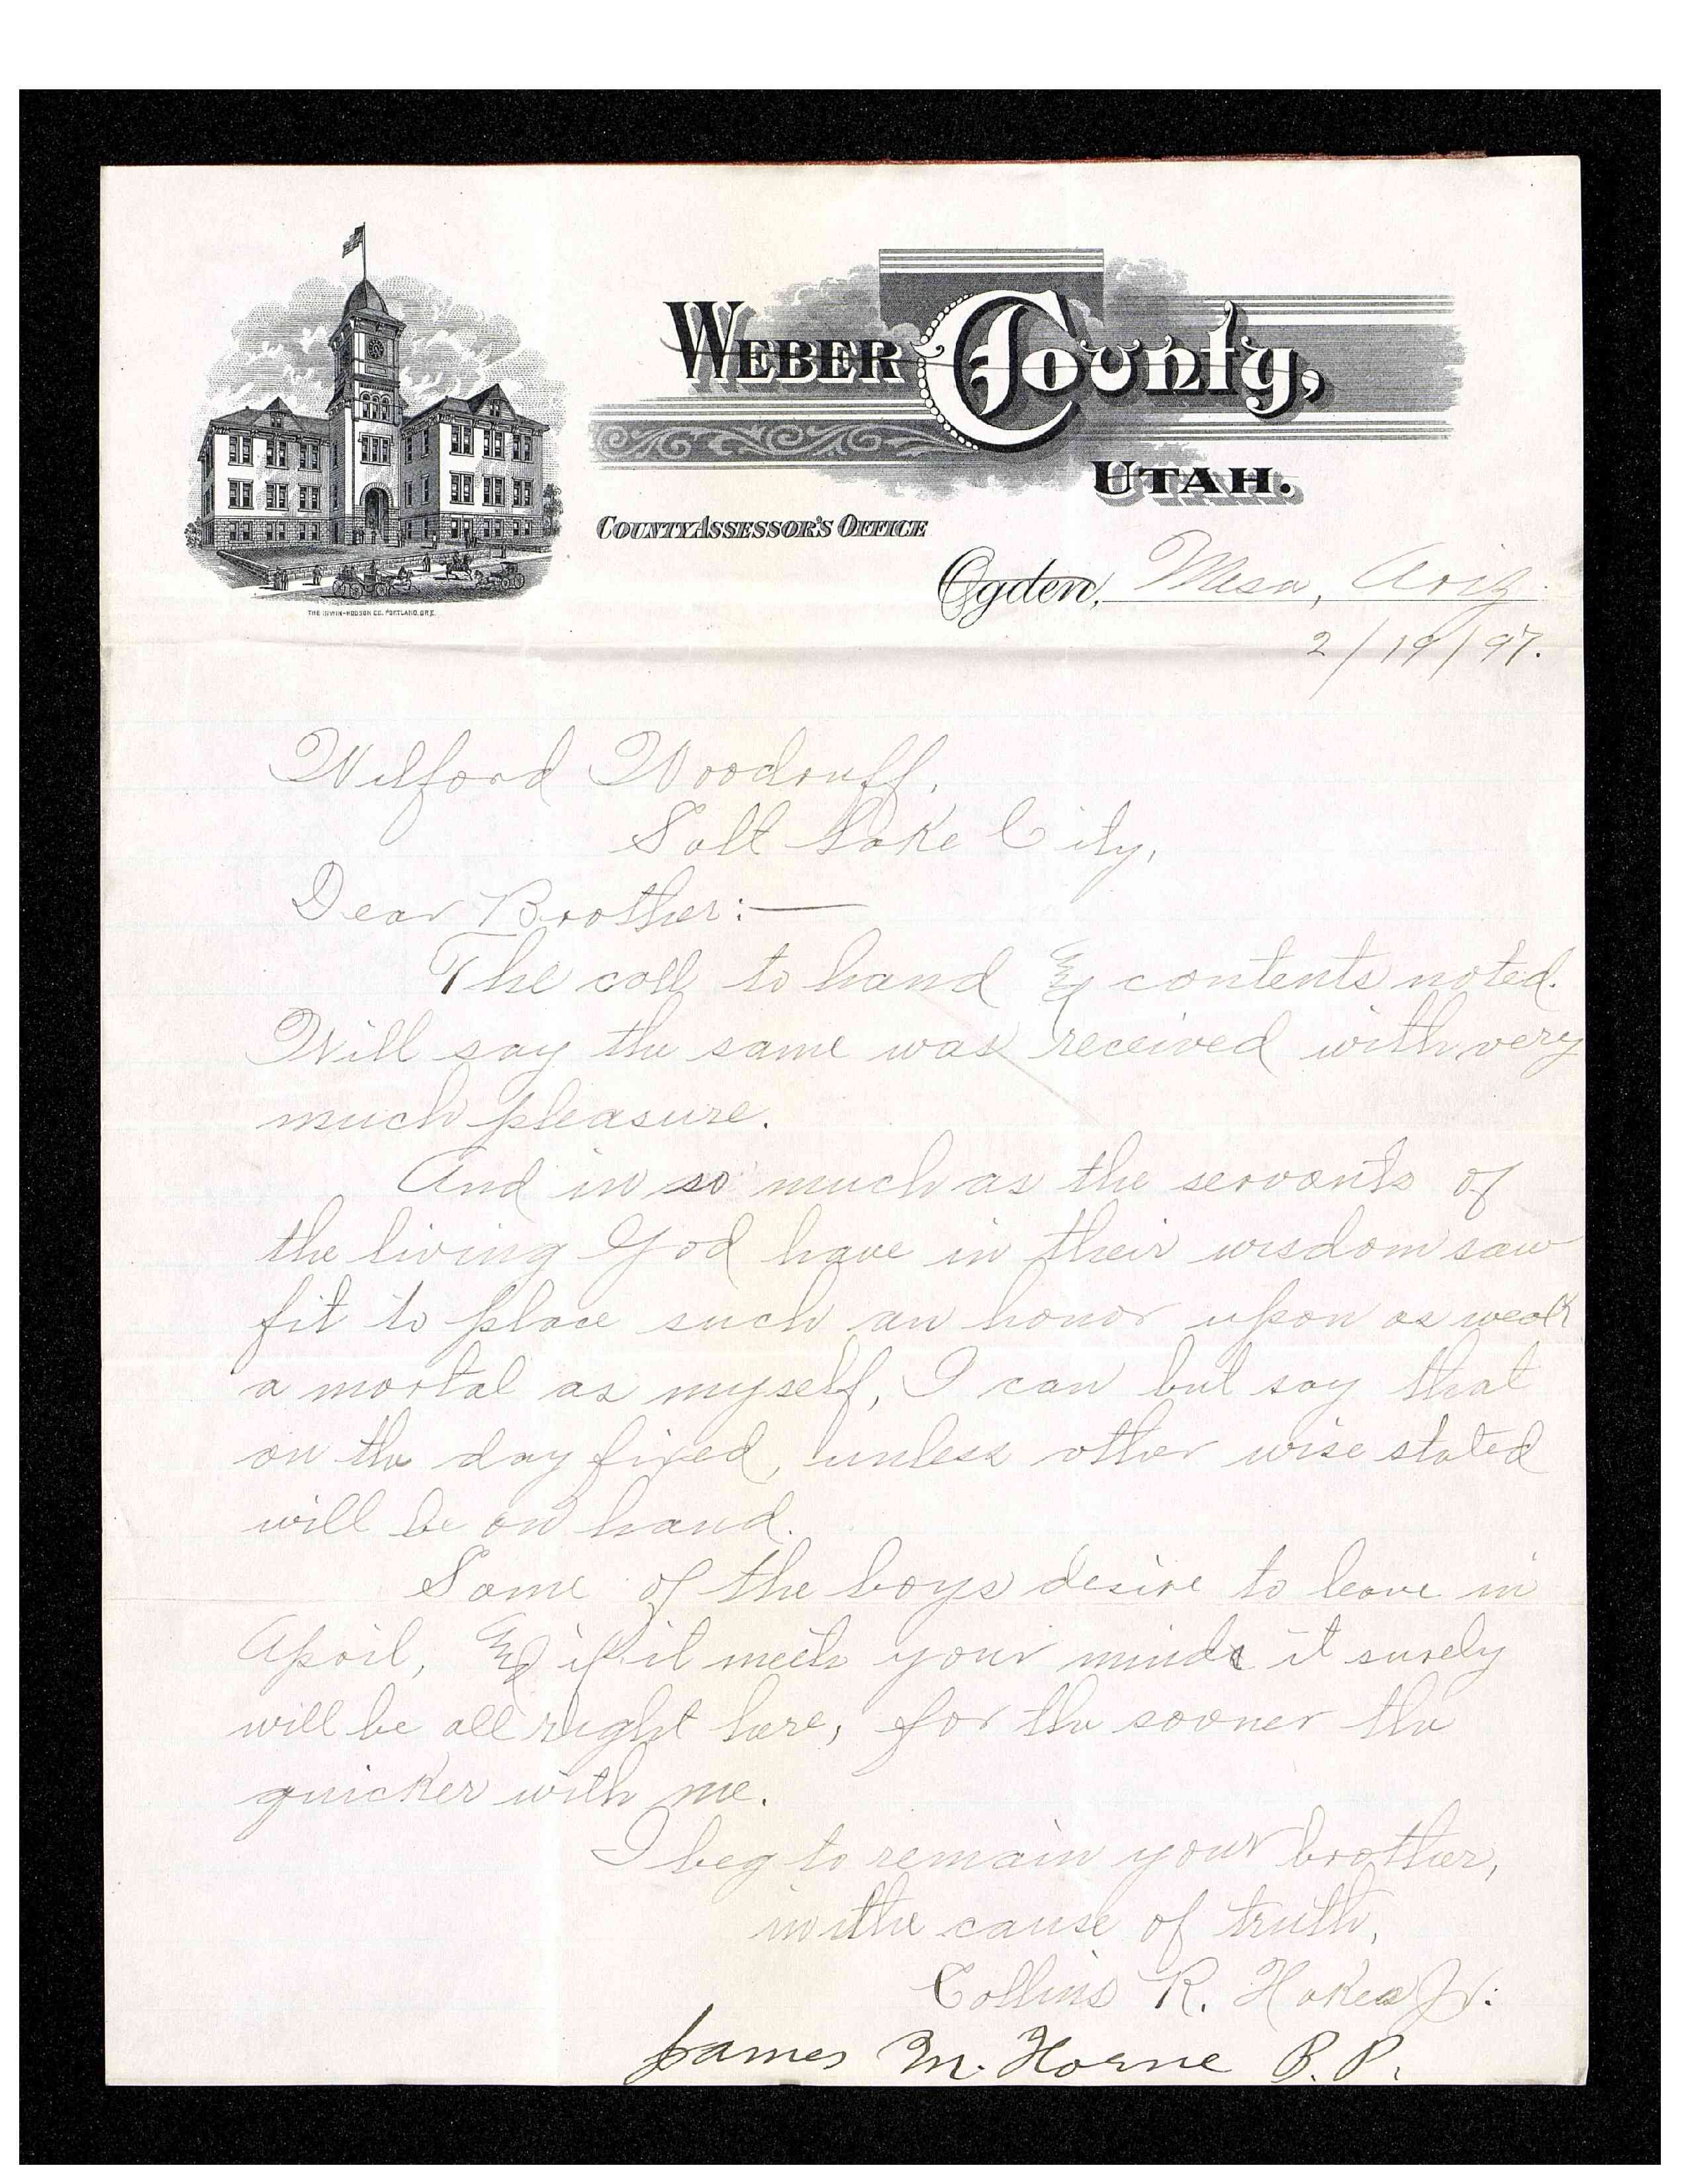 WEBER County,
UTAH.
COUNTY ASSESSOR'S OFFICE
THE IRWIN-HODSON CO. PORTLAND, ORE.
Ogden, Mesa, Ariz.
2/19/97.
Wilford Woodruff,
Salt Lake City,
Dear Brother:—
The call to hand & contents noted.
Will say the same was received with very
much pleasure.
And in so much as the servants of
the living God have in their wisdom saw
fit to place such an honor upon as weak
a mortal as myself, I can but say that
on the day fixed, unless other wise stated
will be on hand.
Some of the boys desire to leave in
April, & if it meets your minds it surely
will be all right here, for the sooner the
quicker with me.
I beg to remain your brother,
in the cause of truth,
Collins R. Hakes Jr.
James M. Horne B.P.